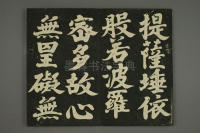 提薩埵依
般若波羅
蜜多故心
無罣礙無